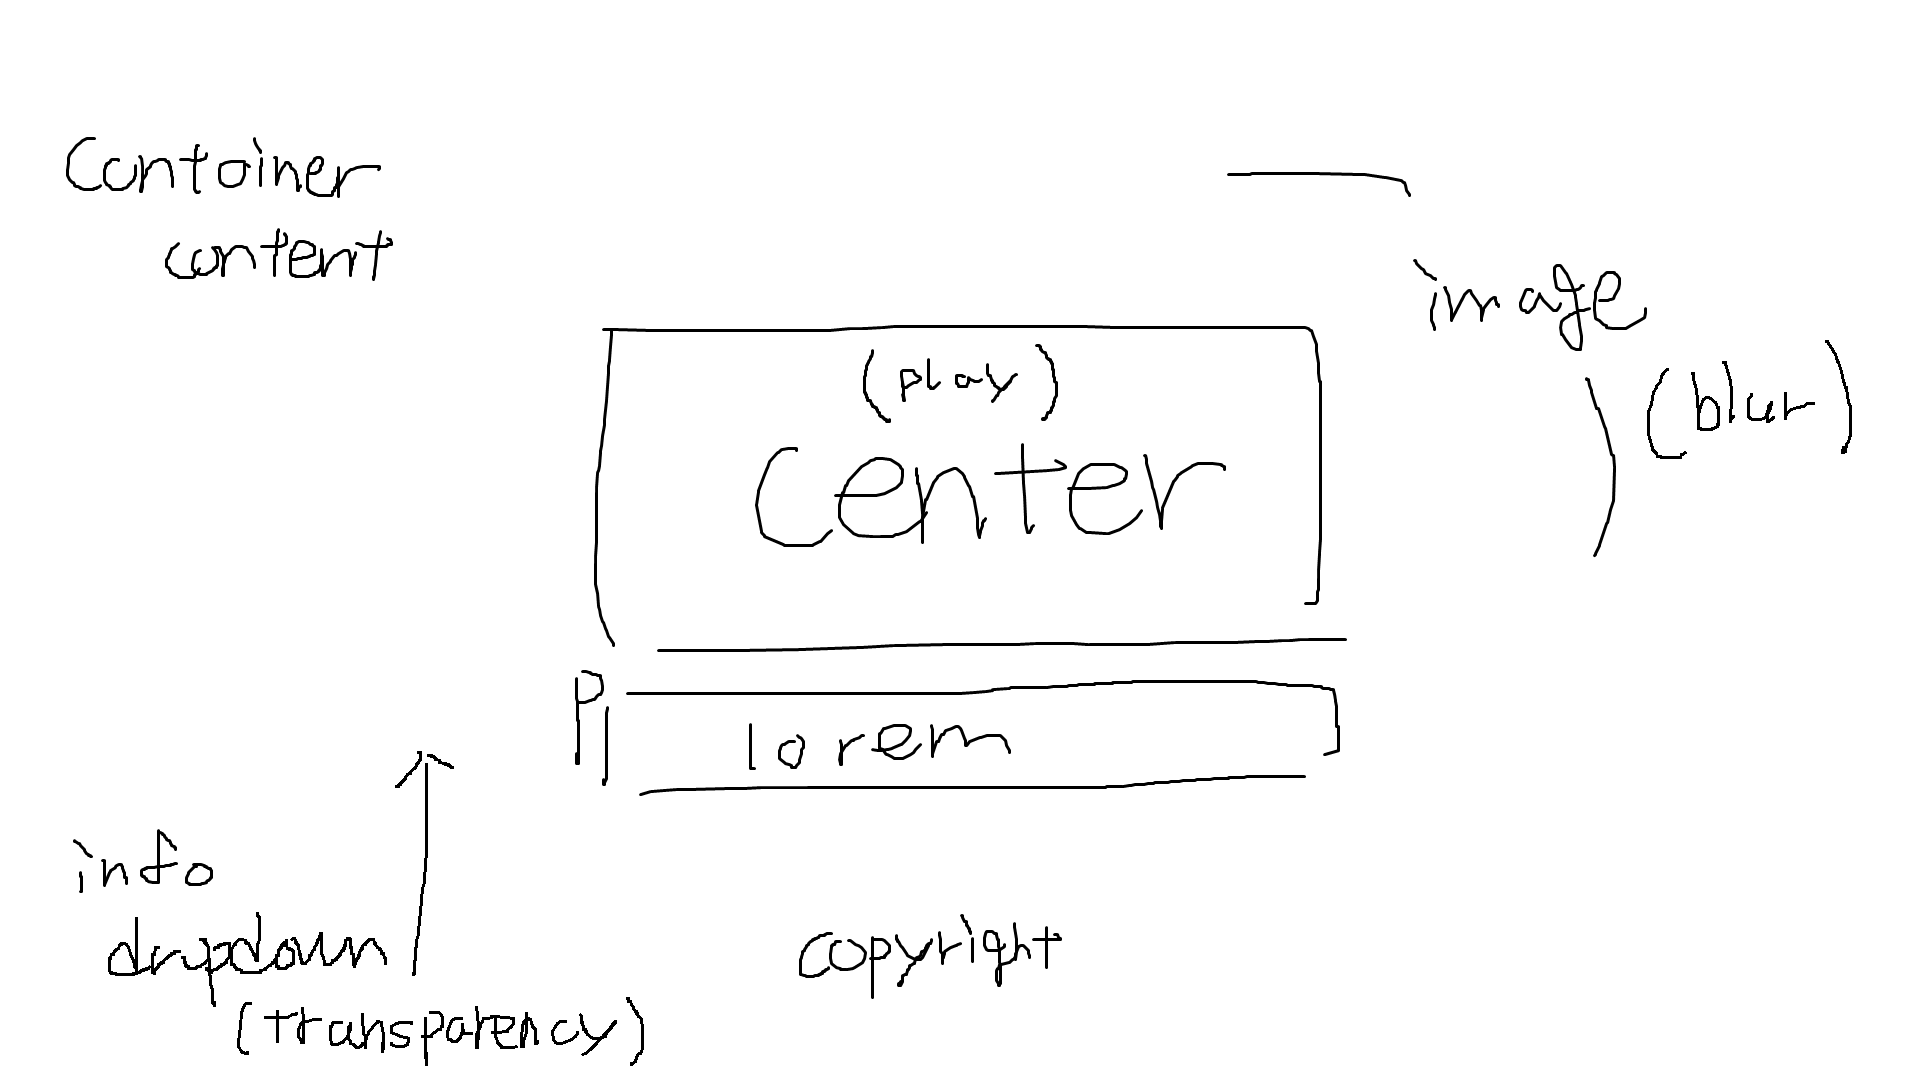 Container
content
image
(blur)
(play)
Center
P
lorem
info
dropdown
(transparency)
copyright